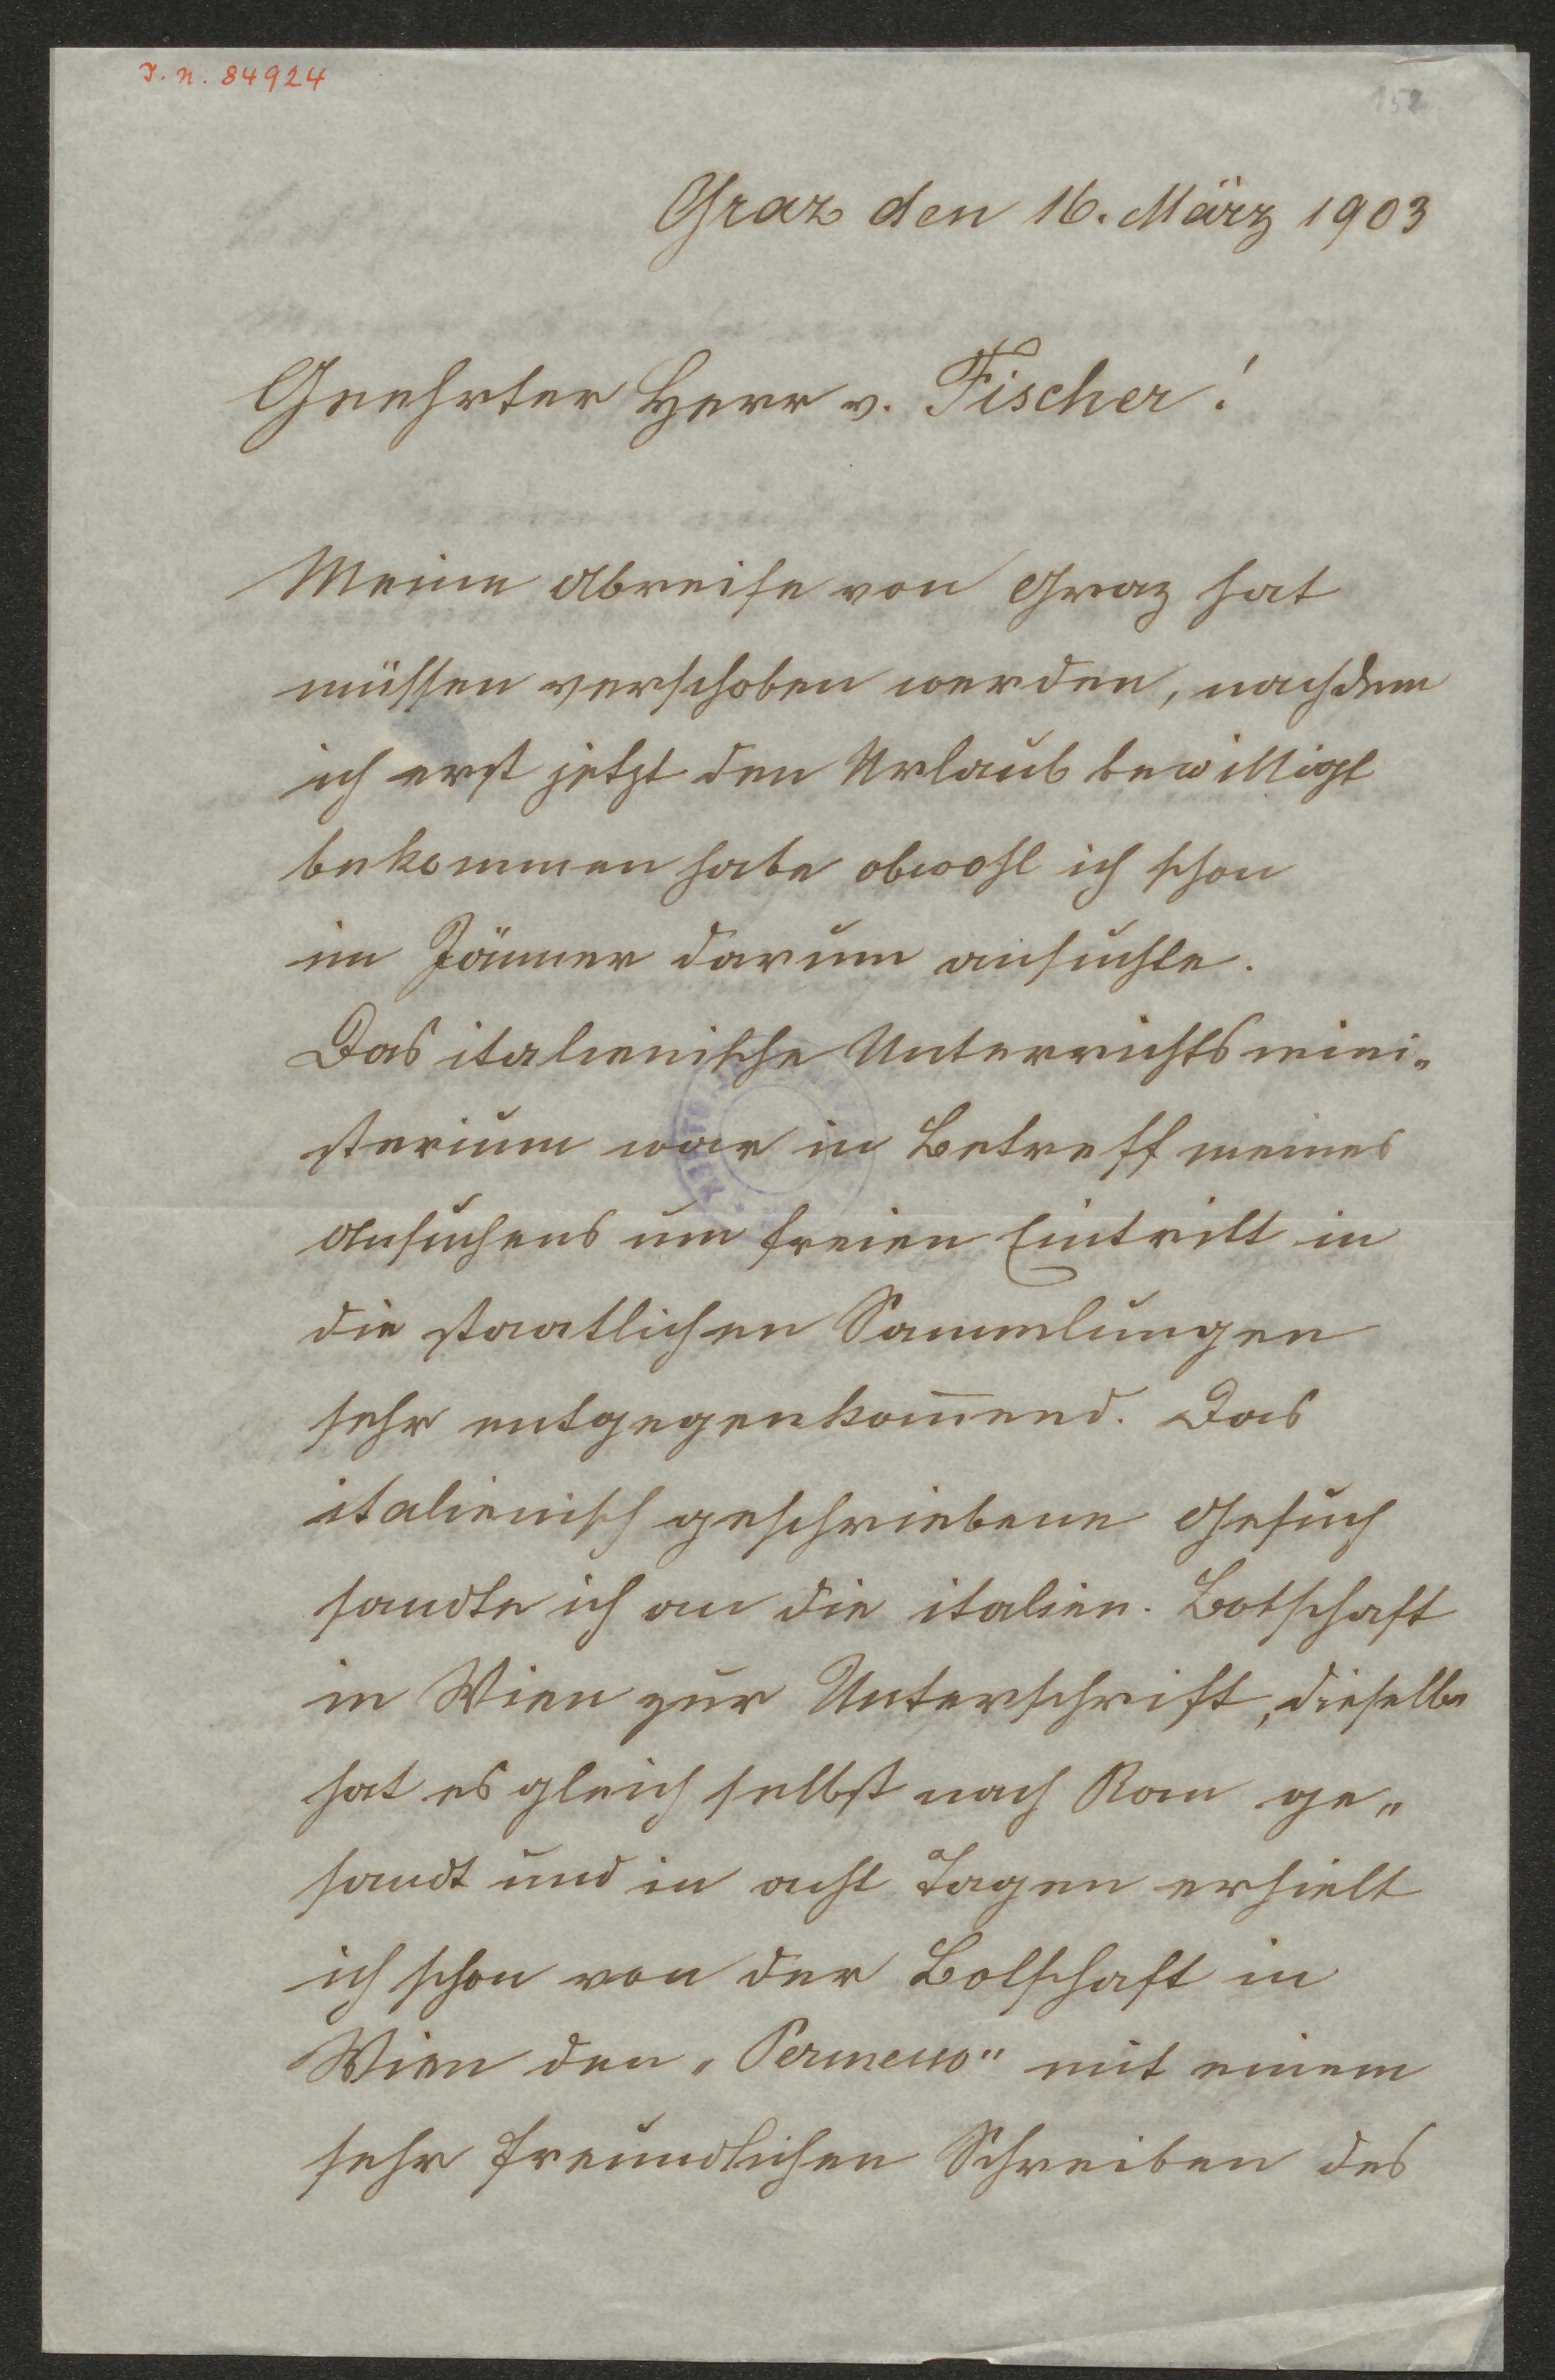 J. N. 84924
152
Graz den 16. März 1903
Geehrter Herr v. Fischer!
Meine Abreise von Graz hat
müssen verschoben werden, nachdem
ich erst jetzt den Urlaub bewilligt
bekommen habe obwohl ich schon
im Jänner darum ansuchte.
Das italienische Unterrichtsmini„
sterium war in Betreff meines
Ansuchens um freien Eintritt in
die staatlichen Sammlungen
sehr entgegenkom̄end. Das
italienisch geschriebene Gesuch
sandte ich an die italien. Botschaft
in Wien zur Unterschrift, dieselbe
hat es gleich selbst nach Rom ge„
sandt und in acht Tagen erhielt
ich schon von der Botschaft in
Wien den „Permesso" mit einem
sehr freundlichen Schreiben des